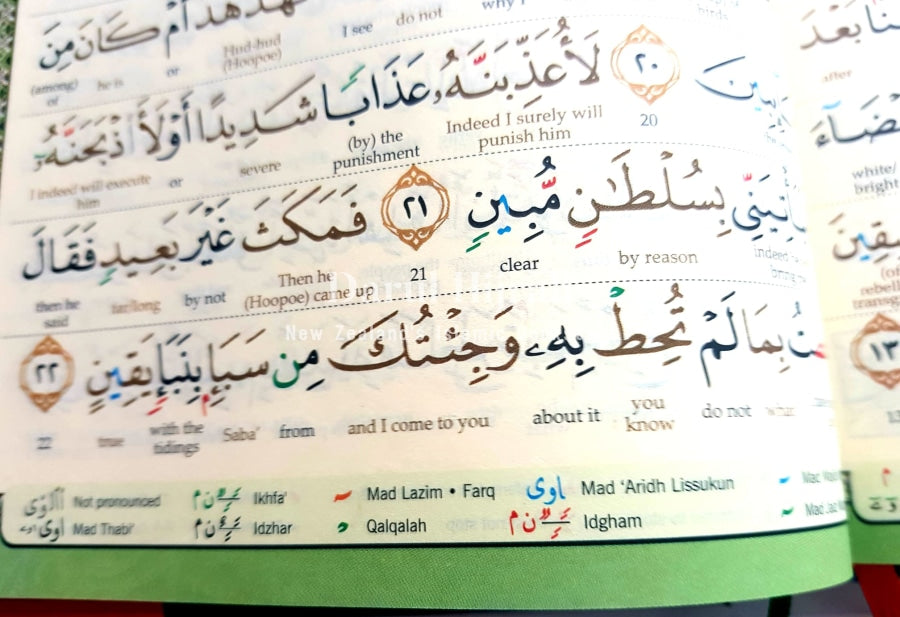 هُدْهُدَ أَمْ كَانَ مِنَ
I see do not why I birds
(among) of he is or Hud-hud (Hoopoe)
لَأُعَذِّبَنَّهُۥ عَذَابًا شَدِيدًا أَوْ لَأَاْذْبَحَنَّهُۥٓ ٢٠
20 Indeed I surely will punish him (by) the punishment severe or I indeed will execute him
بِسُلْطَٰنٍ مُّبِينٍ ٢١ فَمَكَثَ غَيْرَ بَعِيدٍ فَقَالَ
by reason clear 21 Then he (Hoopoe) came up by not far/long then he said
بِمَا لَمْ تُحِطْ بِهِۦ وَجِئْتُكَ مِن سَبَإٍۭ بِنَبَإٍ يَقِينٍ ٢٢
do not you know about it and I come to you from Saba' with the tidings true 22
New Zealand's Islamic
Not pronounced Ikhfa' Mad Lazim • Farq اوى Mad 'Aridh Lissukun
اوى Mad Thabi' Idzhar Qalqalah Idgham
بَعْدَ
after
white/
bright
(of
rebell
transg
١٣
13